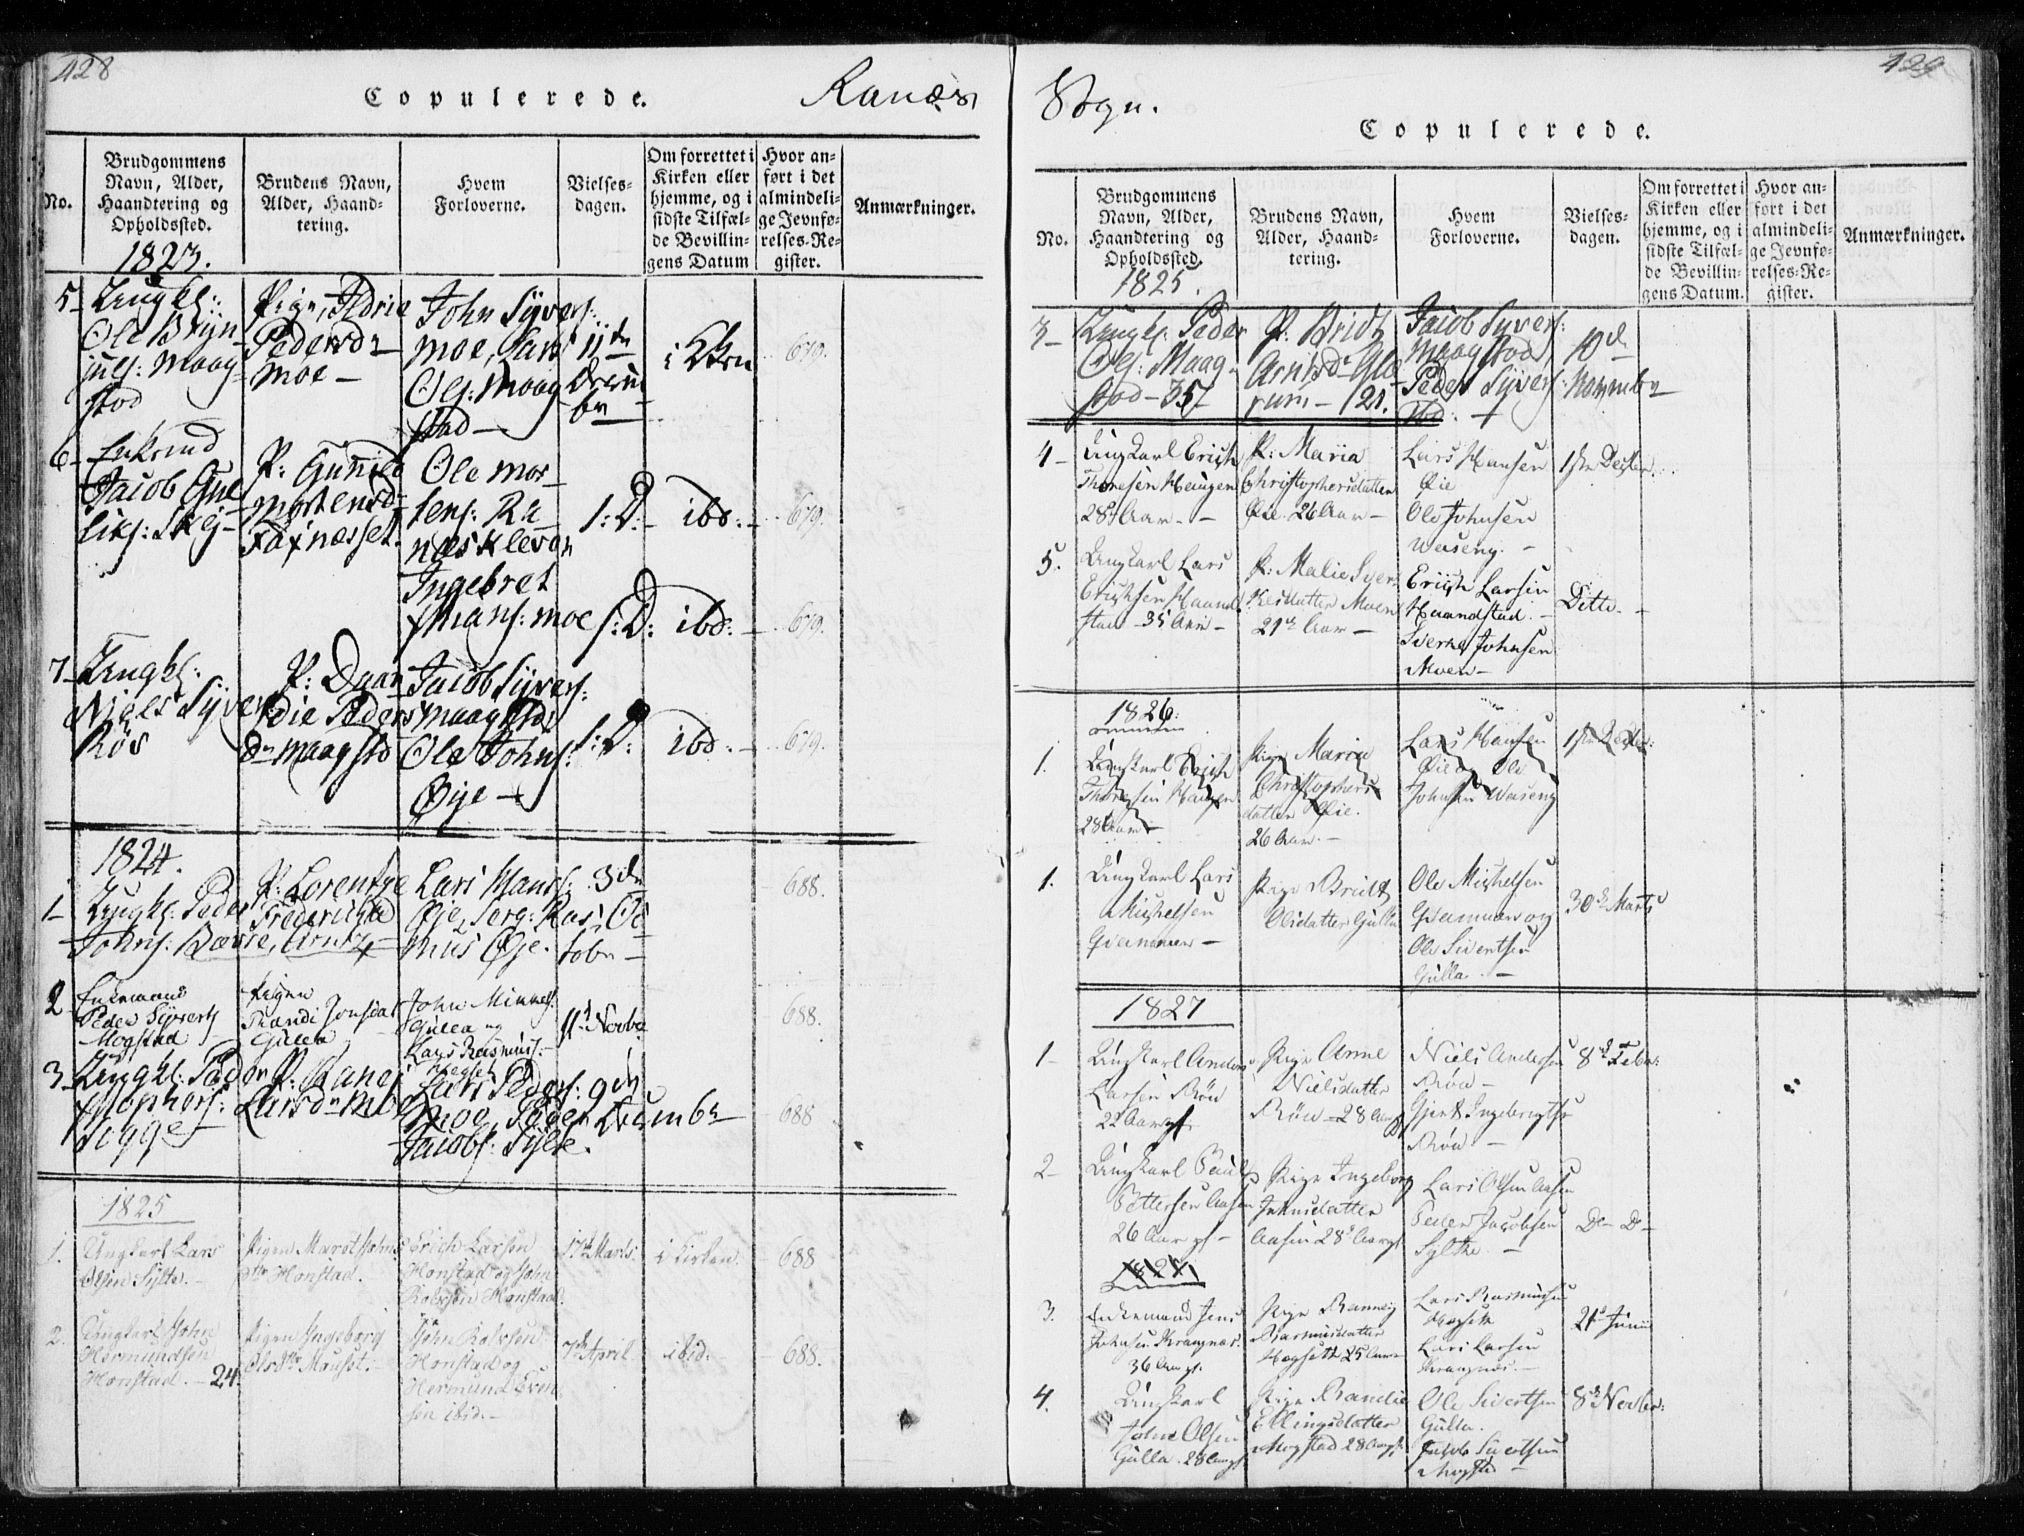 428
Copulerede.
Ranæs
No.
Brudgommens
Navn, Alder,
Haandtering og
Opholdssted.
Brudens Navn,
Alder, Haand-
tering.
Hvem
Forloverne.
Vielses-
dagen.
Om forrettet i
Kirken eller
hjemme, og i
sidste Tilfæl-
de Bevillin-
gens Datum
Hvor an-
ført i det
almindeli-
ge Jevnfø-
relses-Re-
gister.
Anmærkninger.
1823.
5
Ungkl:
Ole Bryn-
julf: Maag-
stad
Pige,
Pedersd
Moe
John Syvers:
Moe, Lars
Ols: Maag
stad
11te
Decem
br
i Kkn
679.
6
Enkemd
Jacob
P: Gunild
Mortensd
Faxnesset
Ole Mor
tens: Ra
næs Kleven
Ingebret
Hans: Moe
S: D:
ibd:
679.
S: D:
ibd:
679.
7
Ungkl:
Niels Syvers
Röv
P:
Peders
dr Maagstd
Jacob Syvers:
Maagstd
Ole Johns:
Øye
S: D:
ibd:
679.
1824.
1
Ungkl: Peder
Johns: Bævre
P: Lorentze
Fredericha
Arntz
Lars Hans:
Øje, Serg: Ras
mus Øje.
3de
Oc
tobr
688.
2
Enkemand
Peder Syverts
Mogstad
Pigen
Randi Jonsdat
Gulla
John Mikkels
Gulla og
Lars Rasmus:
Hogset
11te Novbr
688.
3
Ungkl: Peder
Sigge
P: Rane
Larsdr Moe
Lars Peders:
Moe, Peder
Jacobs: Sylte.
9de
Decembr
688
1825
1.
Ungkarl Lars
Olsen Sylte.
Pigen Marit Johns
dtr Honstad.
Erich Larsen
Honstad og John
Kolvsen Honstad.
17de Marts.
i Kirken.
688
2.
Ungkarl John
Hermundsen
Honstad. - 24.
Pigen Ingeborg
Olsdtr Mauset.
John Kolvsen
Honstad og
Hermund Even
sen ibid.
7de April
ibid.
688.
429
Sogn.
Copulerede.
No.
Brudgommens
Navn, Alder,
Haandtering og
Opholdssted.
Brudens Navn,
Alder, Haand-
tering.
Hvem
Forloverne.
Vielses-
dagen.
Om forrettet i
Kirken eller
hjemme, og i
sidste Tilfæl-
de Bevillin-
gens Datum.
Hvor an-
ført i det
almindeli-
ge Jevnfø-
relses-Re-
gister.
Anmærkninger.
1825.
3
Ungkl: Peder
Ols: Maag-
stad - 35
P: Bridt
Arntsd Glæ
rum - 21.
Jacob Syvers:
Maagstad
Peder Syvers:
ibd:
10de
Novembr
4
Ungkarl Erich
Thoresen Haugen
28 Aar
P: Maria
Christophersdatter
Øie. 26 Aar
Lars Hansen
Øie
Ole Johnsen
Waseng.
1ste Decbr.
5.
Ungkarl Lars
Erichsen Haand
stad 35 Aar
P: Malie Sver
kesdatter Moen
21de Aar
Erich Larsen
Haandstad.
Sverke Johnsen
Moen
Ditto.
1826.
1.
Ungkarl Erich
Thoresen Haugen
28 Aar
Pige Maria
Christophers
datter Øie.
26 Aar
Lars Hansen
Øie og Ole
Johnsen Waseng
1ste Decbr:
1.
Ungkarl Lars
Michelsen
Qvammen
Pige Bridt
Olsdatter Gulla
Ole Michelsen
Qvammen og
Ole Sivertsen
Gulla.
30te Marts
1827
1
Ungkarl Anders
Larsen Röv
22 Aar gl
Pige Anne
Nielsdatter
Röv 28 Aar gl
Niels Andersen
Röv
Gjert Ingebrigtsen
Röv
8de Febr:
2
Ungkarl Paul
Pettersen Aasen
26 Aar gl
Pige Ingeborg
Johnsdatter
Aasen 28 Aar gl
Lars Olsen Aasen
Peder Jacobsen
Sylte.
Do Do
1827
3.
Enkemand Jens
Johnsen Kraagnæs
36 Aar gl.
Pige Ranney
Rasmusdatter
Hogsett 25 Aar
Lars Rasmussen
Hogsett
Lars Larsen
Kraagnæs.
21de Junii
4.
Ungkarl
John Olsen
Gulla. 28 Aar gl
Pige Randie
Ellingsdatter
Mogstad 28 Aar gl
Ole Sivertsen
Gulla.
Jacob Sivertsen
Mogstad
8de Novbr: